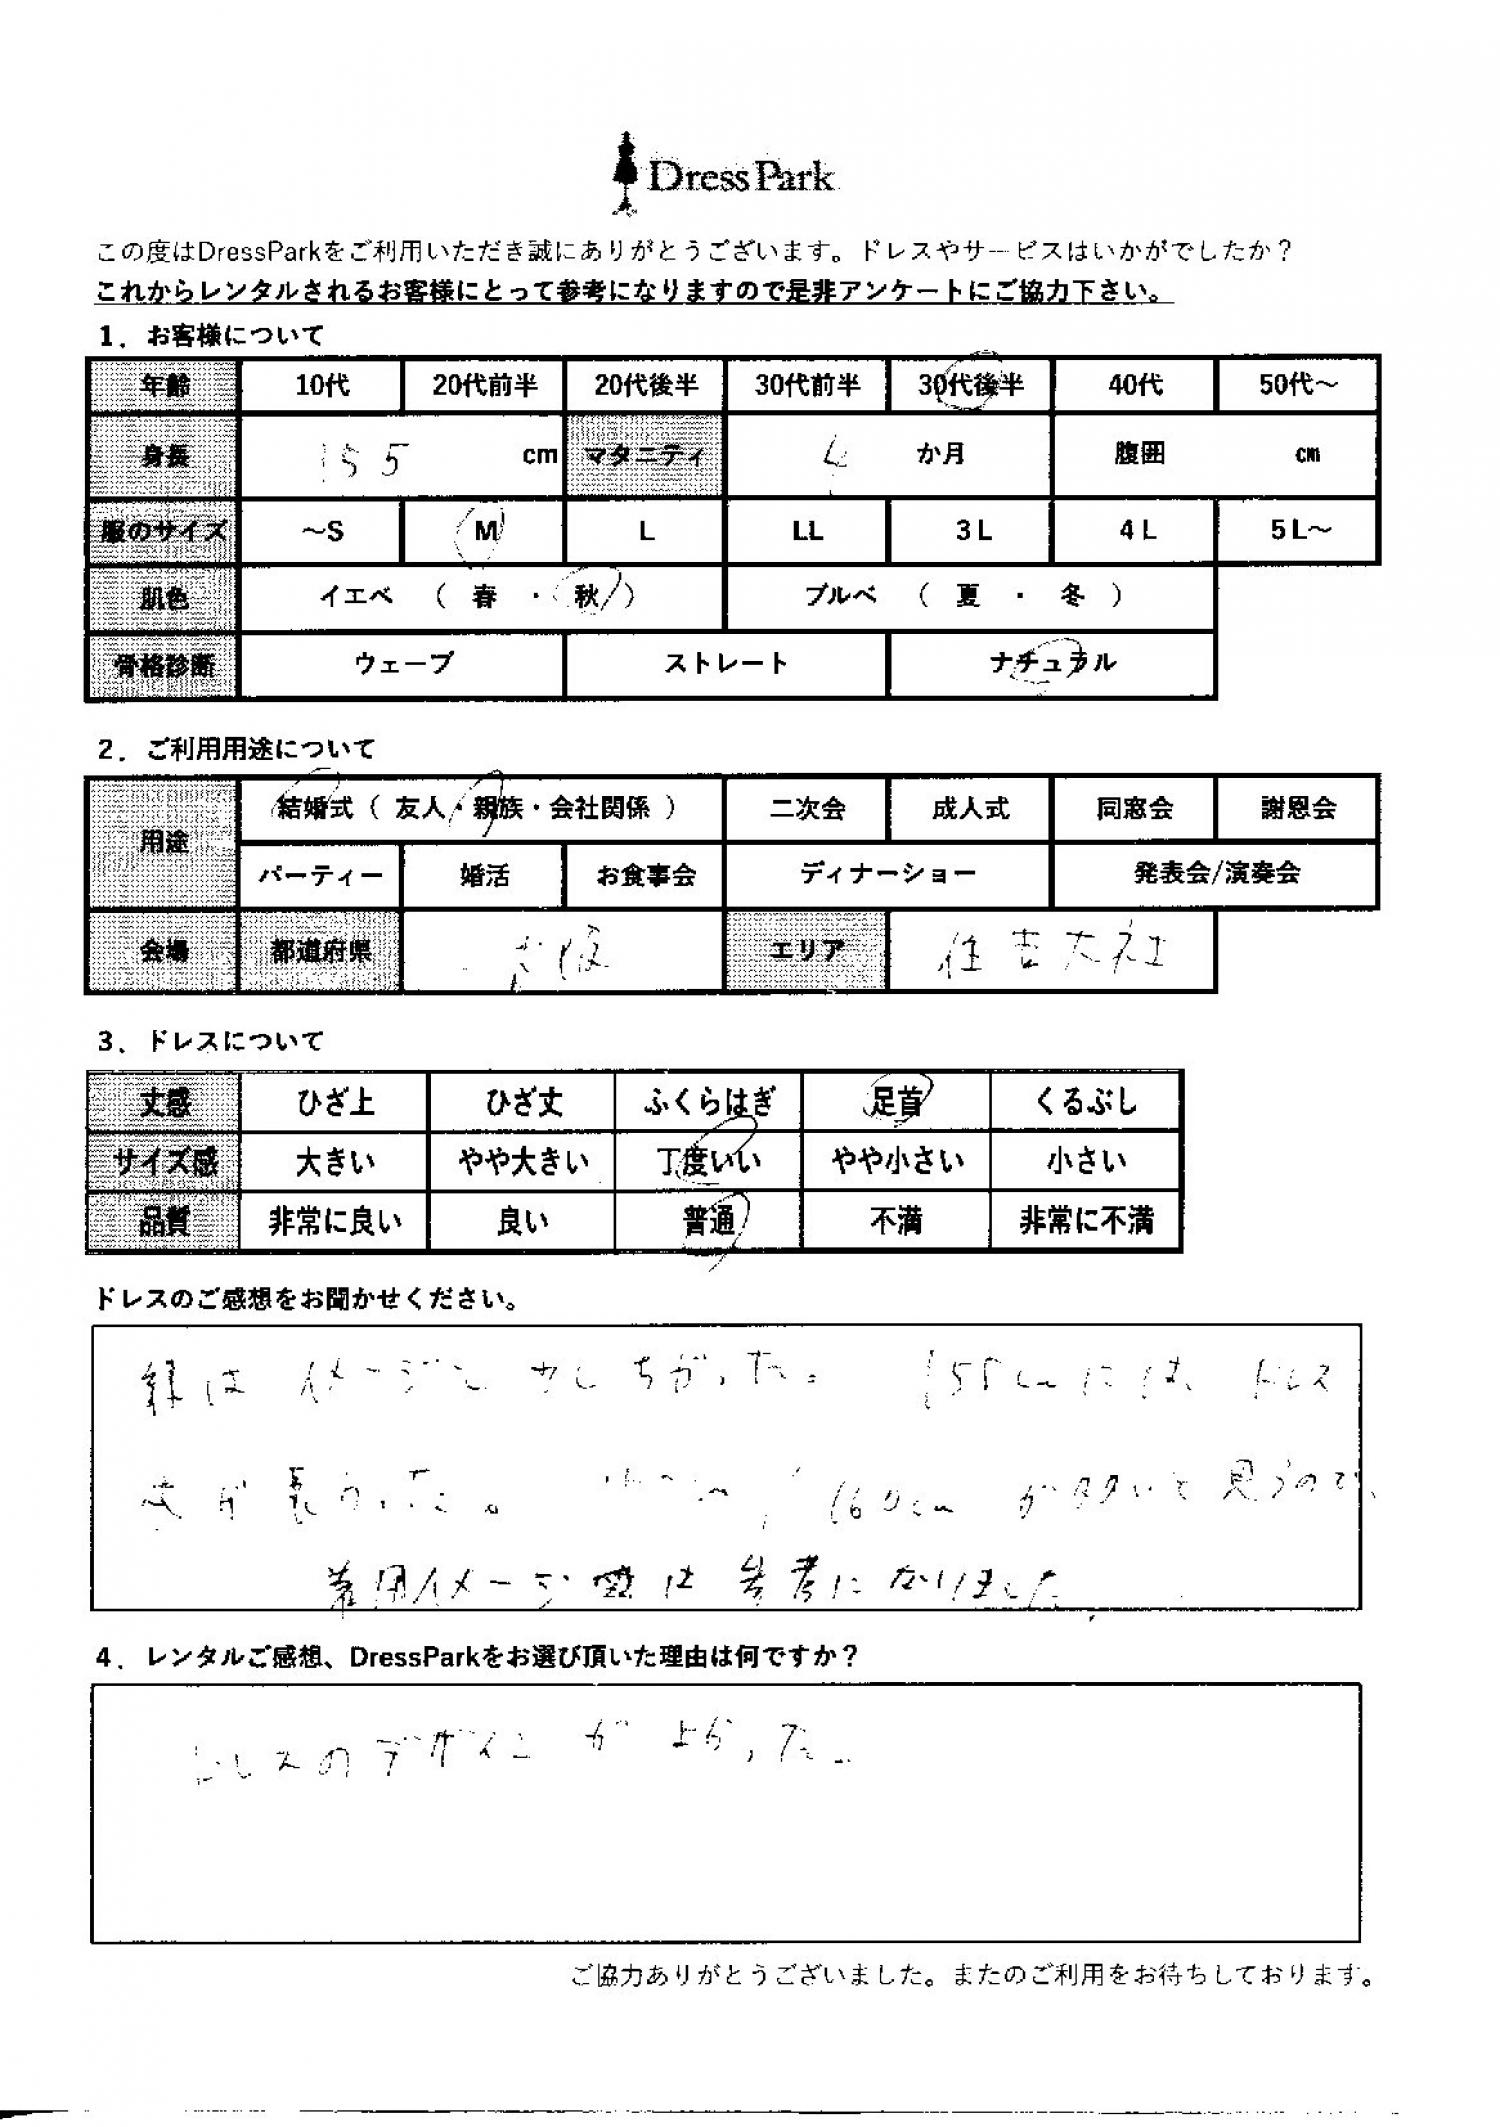 DressPark
この度はDressParkをご利用いただき誠にありがとうございます。ドレスやサービスはいかがでしたか？
これからレンタルされるお客様にとって参考になりますので是非アンケートにご協力下さい。
1．お客様について
年齢 10代 20代前半 20代後半 30代前半 30代後半 40代 50代～
身長 155 cm マタニティ 4 か月 腹囲 cm
服のサイズ ～S M L LL 3L 4L 5L～
肌色 イエベ （ 春 ・ 秋 ） ブルベ （ 夏 ・ 冬 ）
骨格診断 ウェーブ ストレート ナチュラル
2．ご利用用途について
用途 結婚式（ 友人・親族・会社関係 ） 二次会 成人式 同窓会 謝恩会
パーティー 婚活 お食事会 ディナーショー 発表会/演奏会
会場 都道府県 大阪 エリア 住吉大社
3．ドレスについて
丈感 ひざ上 ひざ丈 ふくらはぎ 足首 くるぶし
サイズ感 大きい やや大きい 丁度いい やや小さい 小さい
品質 非常に良い 良い 普通 不満 非常に不満
ドレスのご感想をお聞かせください。
緑は イメージと少しちがった。 155cmには、ドレス
丈が長かった。 160cm が多いと思うので、
着用イメージ は 参考になりました
4．レンタルご感想、DressParkをお選び頂いた理由は何ですか？
ドレスのデザインがよかった。
ご協力ありがとうございました。またのご利用をお待ちしております。